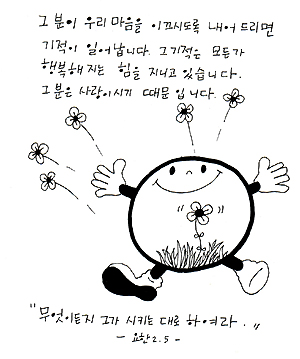 그 분이 우리 마음을 이끄시도록 내어 드리면
기적이 일어납니다. 그 기적은 모든가
행복해 지는 힘을 지니고 있습니다.
그 분은 사랑이시기 때문 입니다.
"무엇이든지 그가 시키는 대로 하여라."
- 요한 2.5 -